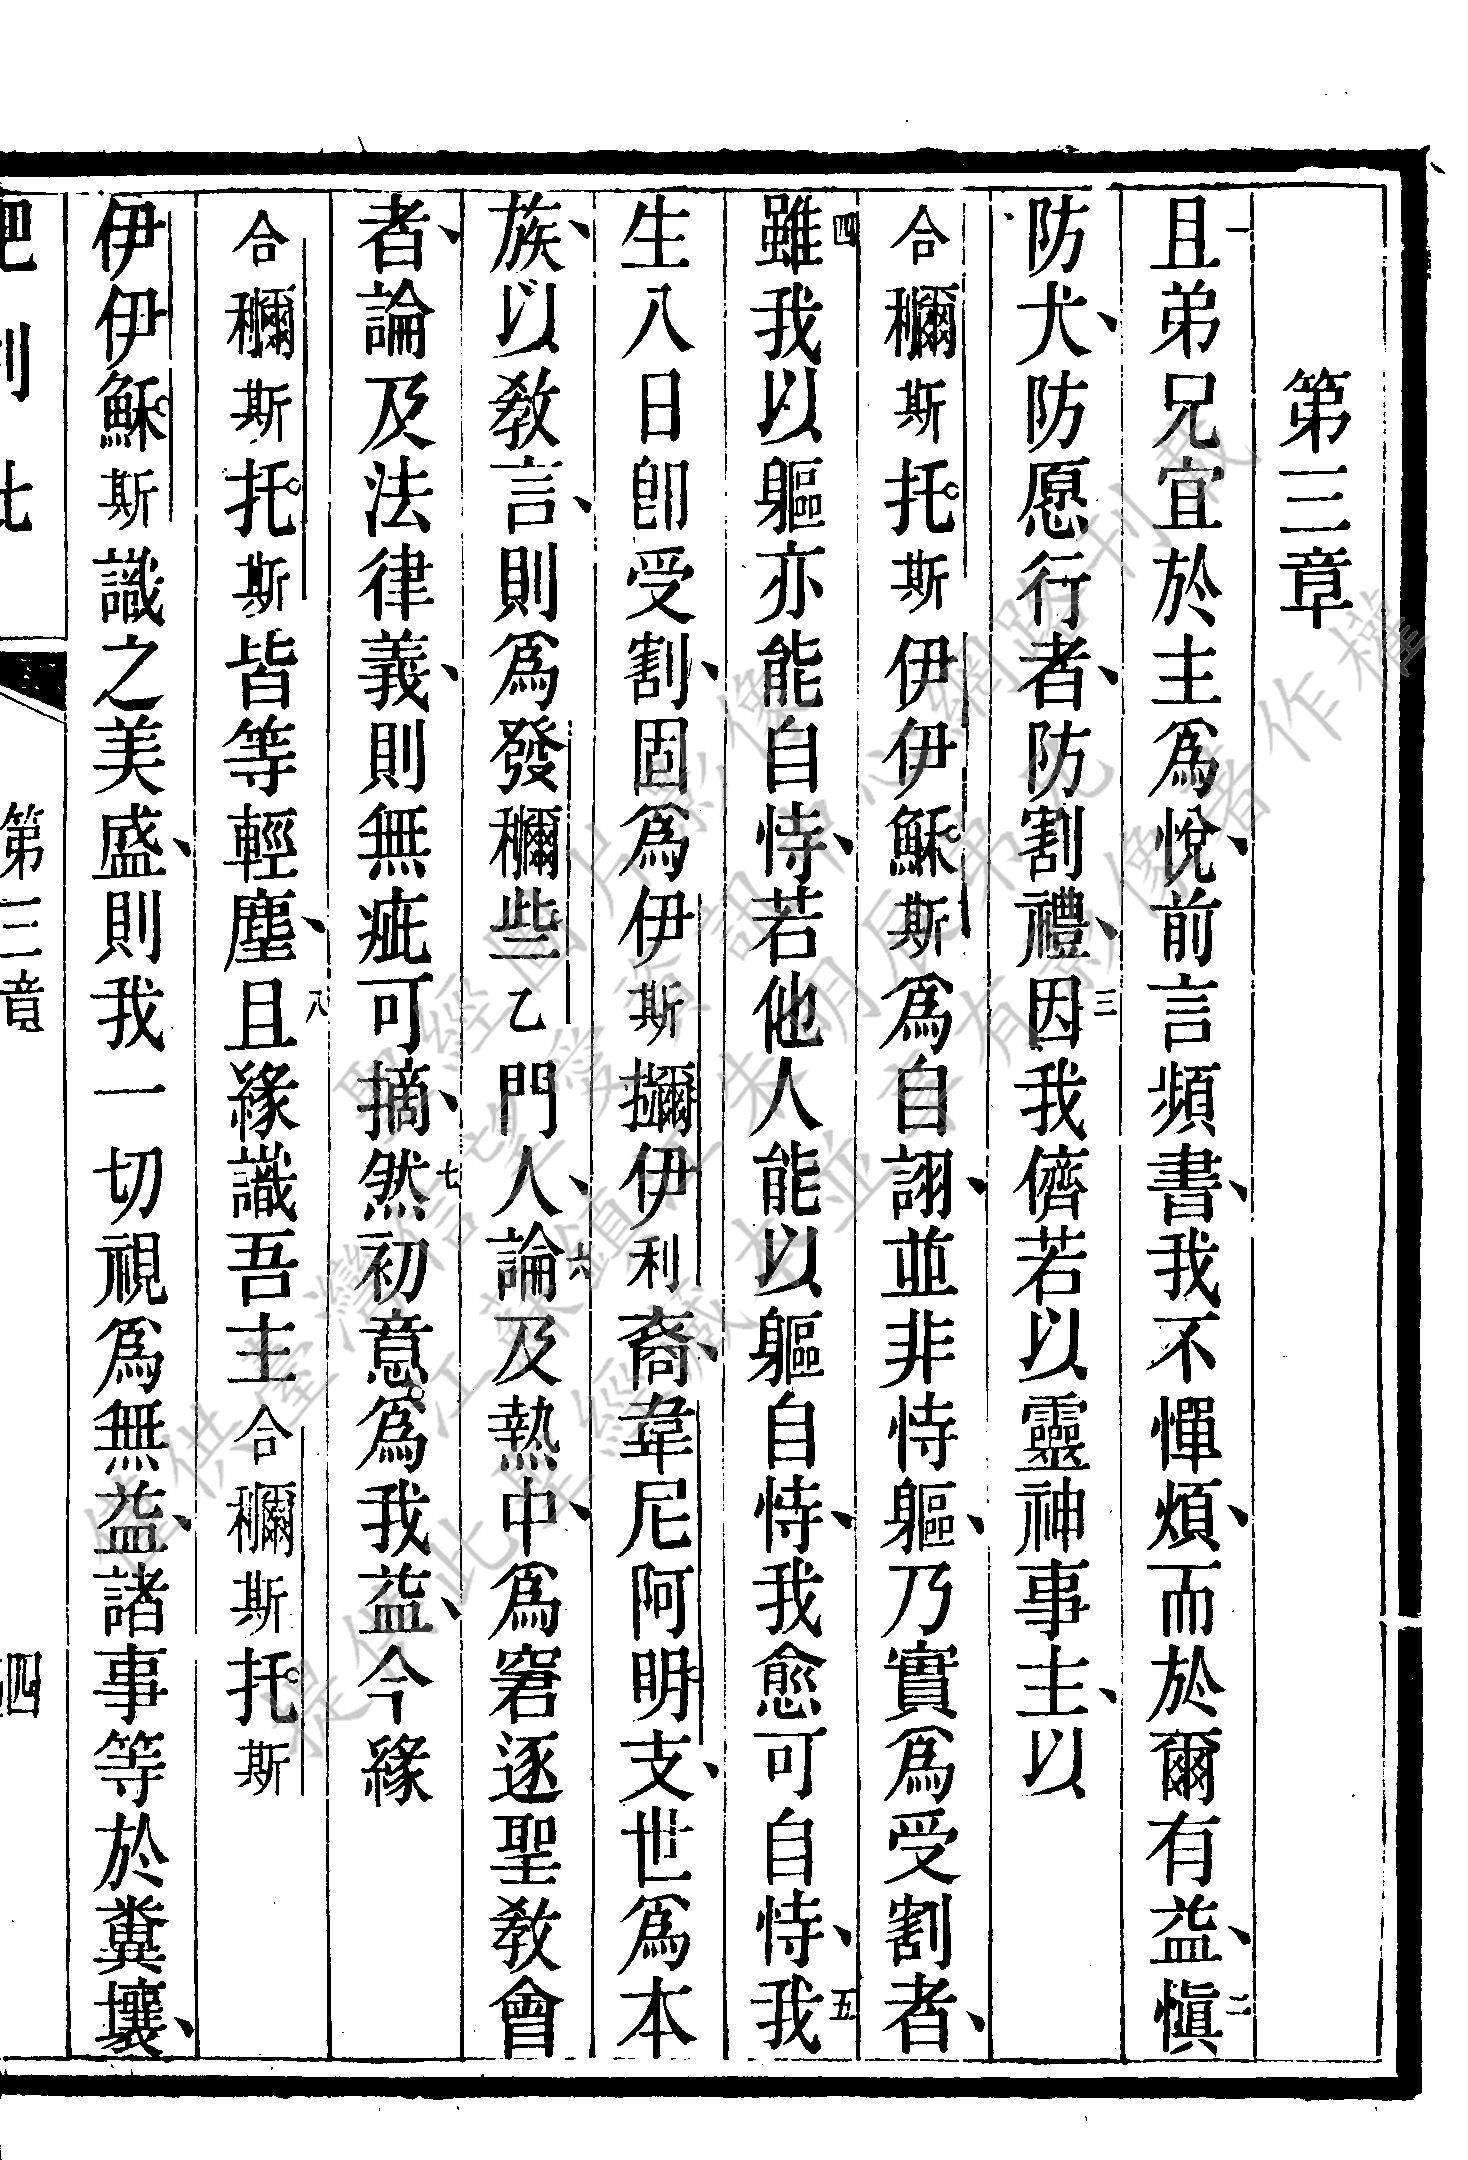 第三章
一且弟兄宜於主爲悅、前言頻書、我不憚煩、而於爾有益、二慎
防犬、防愿行者、防割禮、三因我儕若以靈神事主、以
合穪斯托斯伊伊穌斯爲自詡、並非恃軀、乃實爲受割者、
四雖我以軀亦能自恃、若他人能以軀自恃、我愈可自恃、五我
生八日卽受割、固爲伊斯擟伊利裔、韋尼阿明支、世爲本
族、以教言、則爲發穪些乙門人、六論及熱中、爲窘逐聖教會
者、論及法律義、則無疵可摘、七然初意爲我益、今緣
合穪斯托斯皆等輕塵、八且緣識吾主合穪斯托斯
伊伊穌斯識之美盛、則我一切視爲無益、諸事等於糞壤、
第三章
四